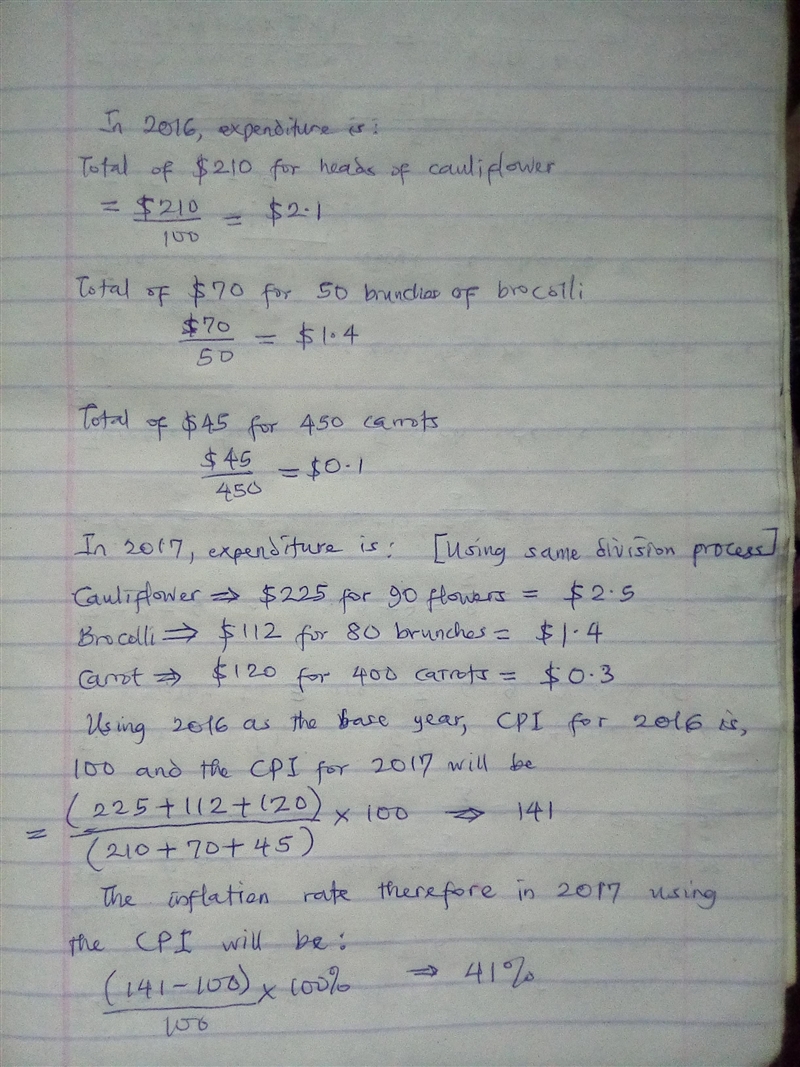 In 2016, expenditure is:
Total of $210 for heads of cauliflower
= $210/100 = $2.1
Total of $70 for 50 brunches of brocolli
$70/50 = $1.4
Total of $45 for 450 carrots
$45/450 = $0.1
In 2017, expenditure is: [Using same division process]
Cauliflower ⇒ $225 for 90 flowers = $2.5
Brocolli ⇒ $112 for 80 brunches = $1.4
Carrot ⇒ $120 for 400 carrots = $0.3
Using 2016 as the base year, CPI for 2016 is,
100 and the CPI for 2017 will be
= (225+112+120)/(210+70+45) × 100 ⇒ 141
The inflation rate therefore in 2017 using
the CPI will be:
(141-100)/100 × 100% ⇒ 41%